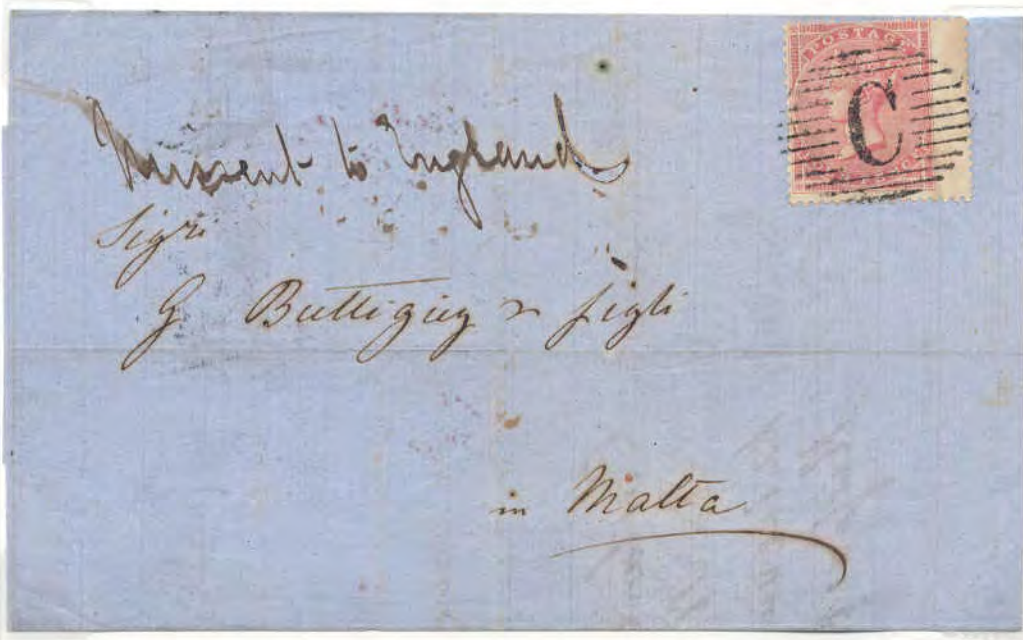 POSTAGE
C
Missent to England
Sigri
G. Buttigieg & figli
in Malta